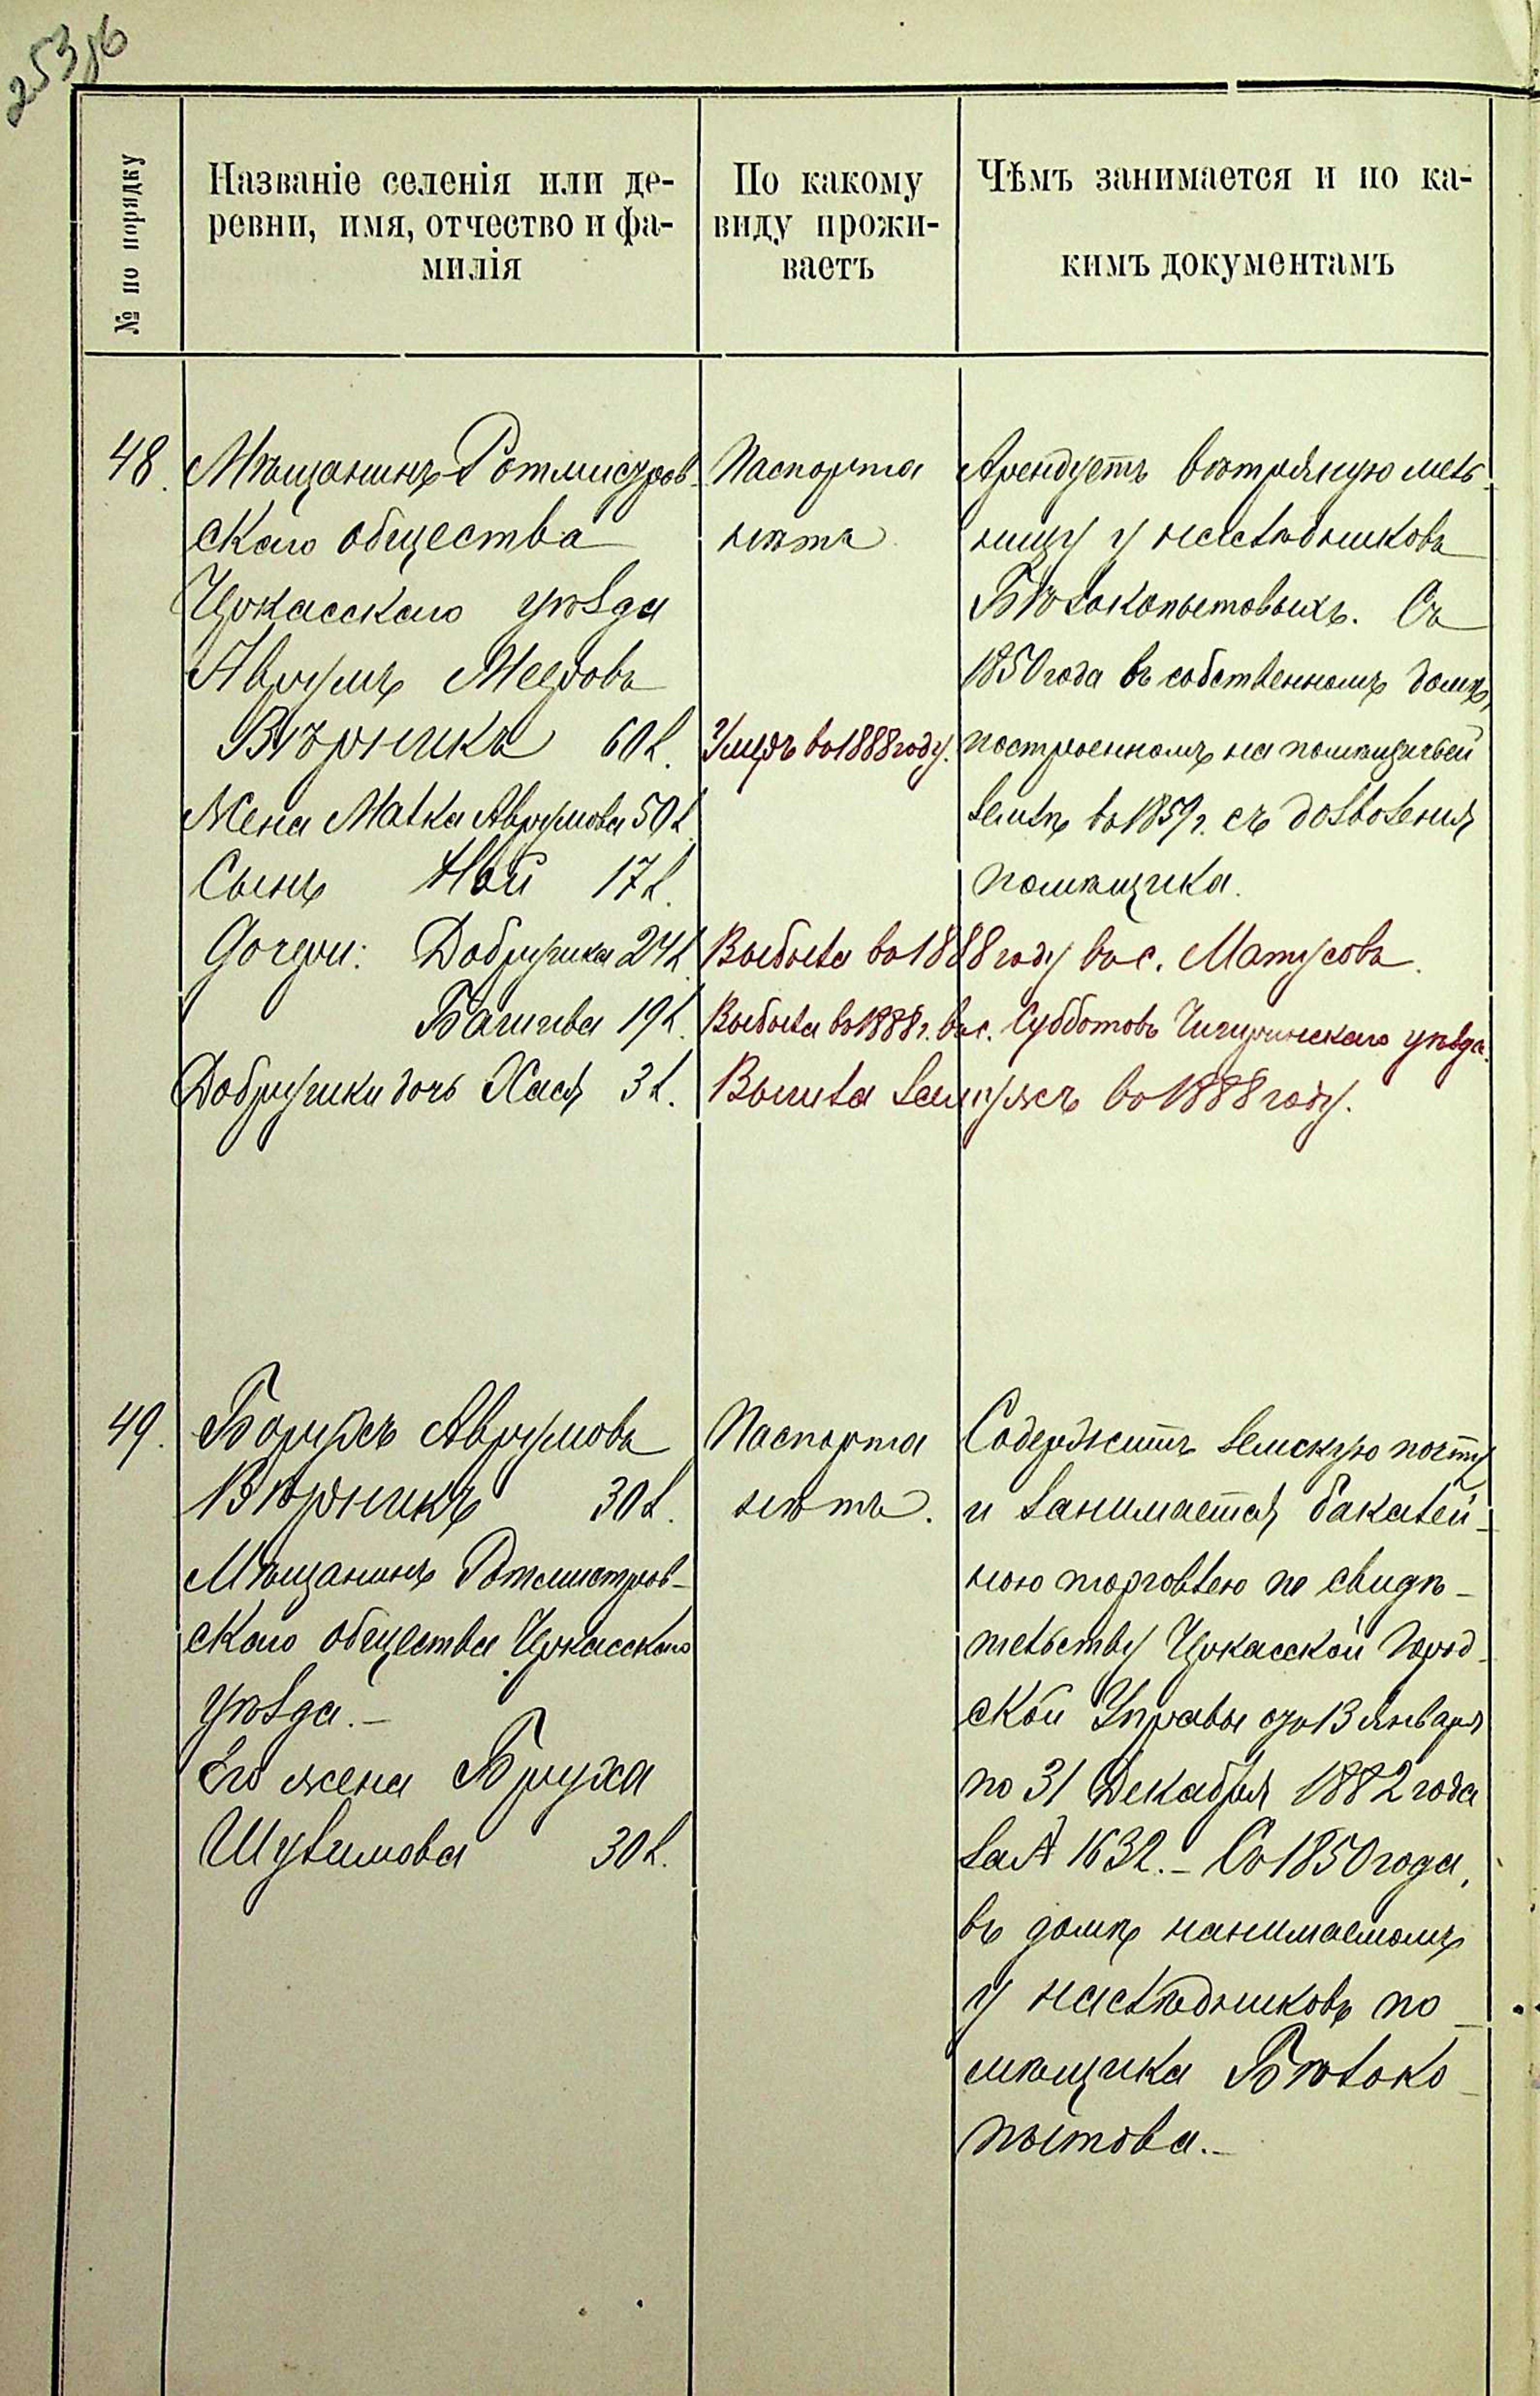 253об
№ по порядку
Названіе селенія или де-
ревни, имя, отчество и фа-
милія
По какому
виду прожи-
ваетъ
Чѣмъ занимается и по ка-
кимъ документамъ
48.
Мѣщанинъ Ротмистров-
скаго общества
Черкасскаго уѣзда
Аврумъ Мееровъ
Вѣрникъ 60 л.
Жена Малка Аврумова 50 л.
Сынъ 17 л.
Дочери: Добрушка 24 л.
Башева 19 л.
Добрушки дочь Хася 3 л.
Паспорта
нѣтъ
Умеръ въ 1888 году.
Арендуетъ вѣтряную мель-
ницу у наслѣдниковъ
Бѣлокопытовыхъ. Съ
1850 года въ собственномъ домѣ,
построенномъ на помѣщичьей
землѣ въ 1859 г. съ дозволенія
помѣщика.
Выбыла въ 1888 году въ с. Матусовъ.
Выбыла въ 1888 г. въ с. Субботовъ Чигиринскаго уѣзда.
Вышла замужъ въ 1888 году.
49.
Борухъ Аврумовъ
Вѣрникъ 30 л.
Мѣщанинъ Ротмистров-
скаго общества Черкасскаго
уѣзда.-
Его жена Бруха
Шулимова 30 л.
Паспорта
нѣтъ.
Содержитъ земскую почту
и занимается бакалей-
ною торговлею по свидѣ-
тельству Черкасской Город-
ской Управы отъ 13 Января
по 31 Декабря 1882 года
за № 1632.- Съ 1850 года,
въ домѣ нанимаемомъ
у наслѣдниковъ по-
мѣщика Бѣлоко-
пытова.-